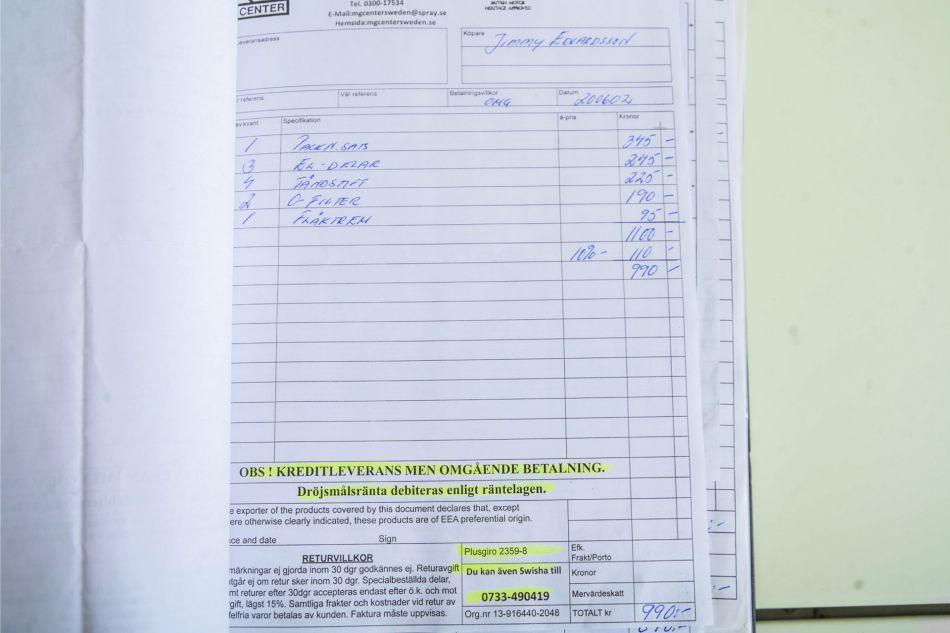 CENTER
Tel. 0300-17534
E-Mail:mgcentersweden@spray.se
Hemsida:mgcentersweden.se
BRITISH MOTOR
HERITAGE APPROVED
everansadress
Köpare
Jimmy Edvardsson
r referens
Vår referens
Betalningsvillkor
OMG
Datum
200602
ev kvant
Specifikation
à-pris
Kronor
1 PACKN.SATS 345 -
3 EL-DELAR 245 -
4 TÄNDSTIFT 225 -
2 O-FILTER 190 -
1 FLÄKTREM 95 -
1100 -
10% - 110 -
990 -
OBS ! KREDITLEVERANS MEN OMGÅENDE BETALNING.
Dröjsmålsränta debiteras enligt räntelagen.
e exporter of the products covered by this document declares that, except
ere otherwise clearly indicated, these products are of EEA preferential origin.
ce and date
Sign
RETURVILLKOR
märkningar ej gjorda inom 30 dgr godkännes ej. Returavgift
tgår ej om retur sker inom 30 dgr. Specialbeställda delar,
mt returer efter 30dgr accepteras endast efter ö.k. och mot
gift, lägst 15%. Samtliga frakter och kostnader vid retur av
felfria varor betalas av kunden. Faktura måste uppvisas.
Plusgiro 2359-8
Du kan även Swisha till
0733-490419
Org.nr 13-916440-2048
Efk.
Frakt/Porto
Kronor
Mervärdeskatt
TOTALT kr
990:-